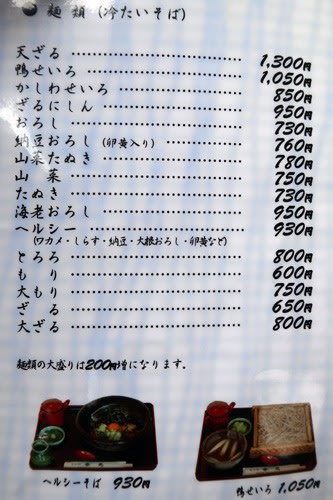 麺類（冷たいそば）
天ざる 1,300円
鴨せいろ 1,050円
かしわせいろ 850円
ざるにしん 950円
おろし 730円
納豆おろし（卵黄入り） 760円
山菜たぬき 780円
山菜 750円
たぬき 730円
海老おろし 950円
ヘルシー 930円
（ワカメ・しらす・納豆・大根おろし・卵黄など）
とろろ 800円
もり 600円
大もり 750円
ざる 650円
大ざる 800円
麺類の大盛りは200円増になります。
ヘルシーそば 930円
鴨せいろ 1,050円